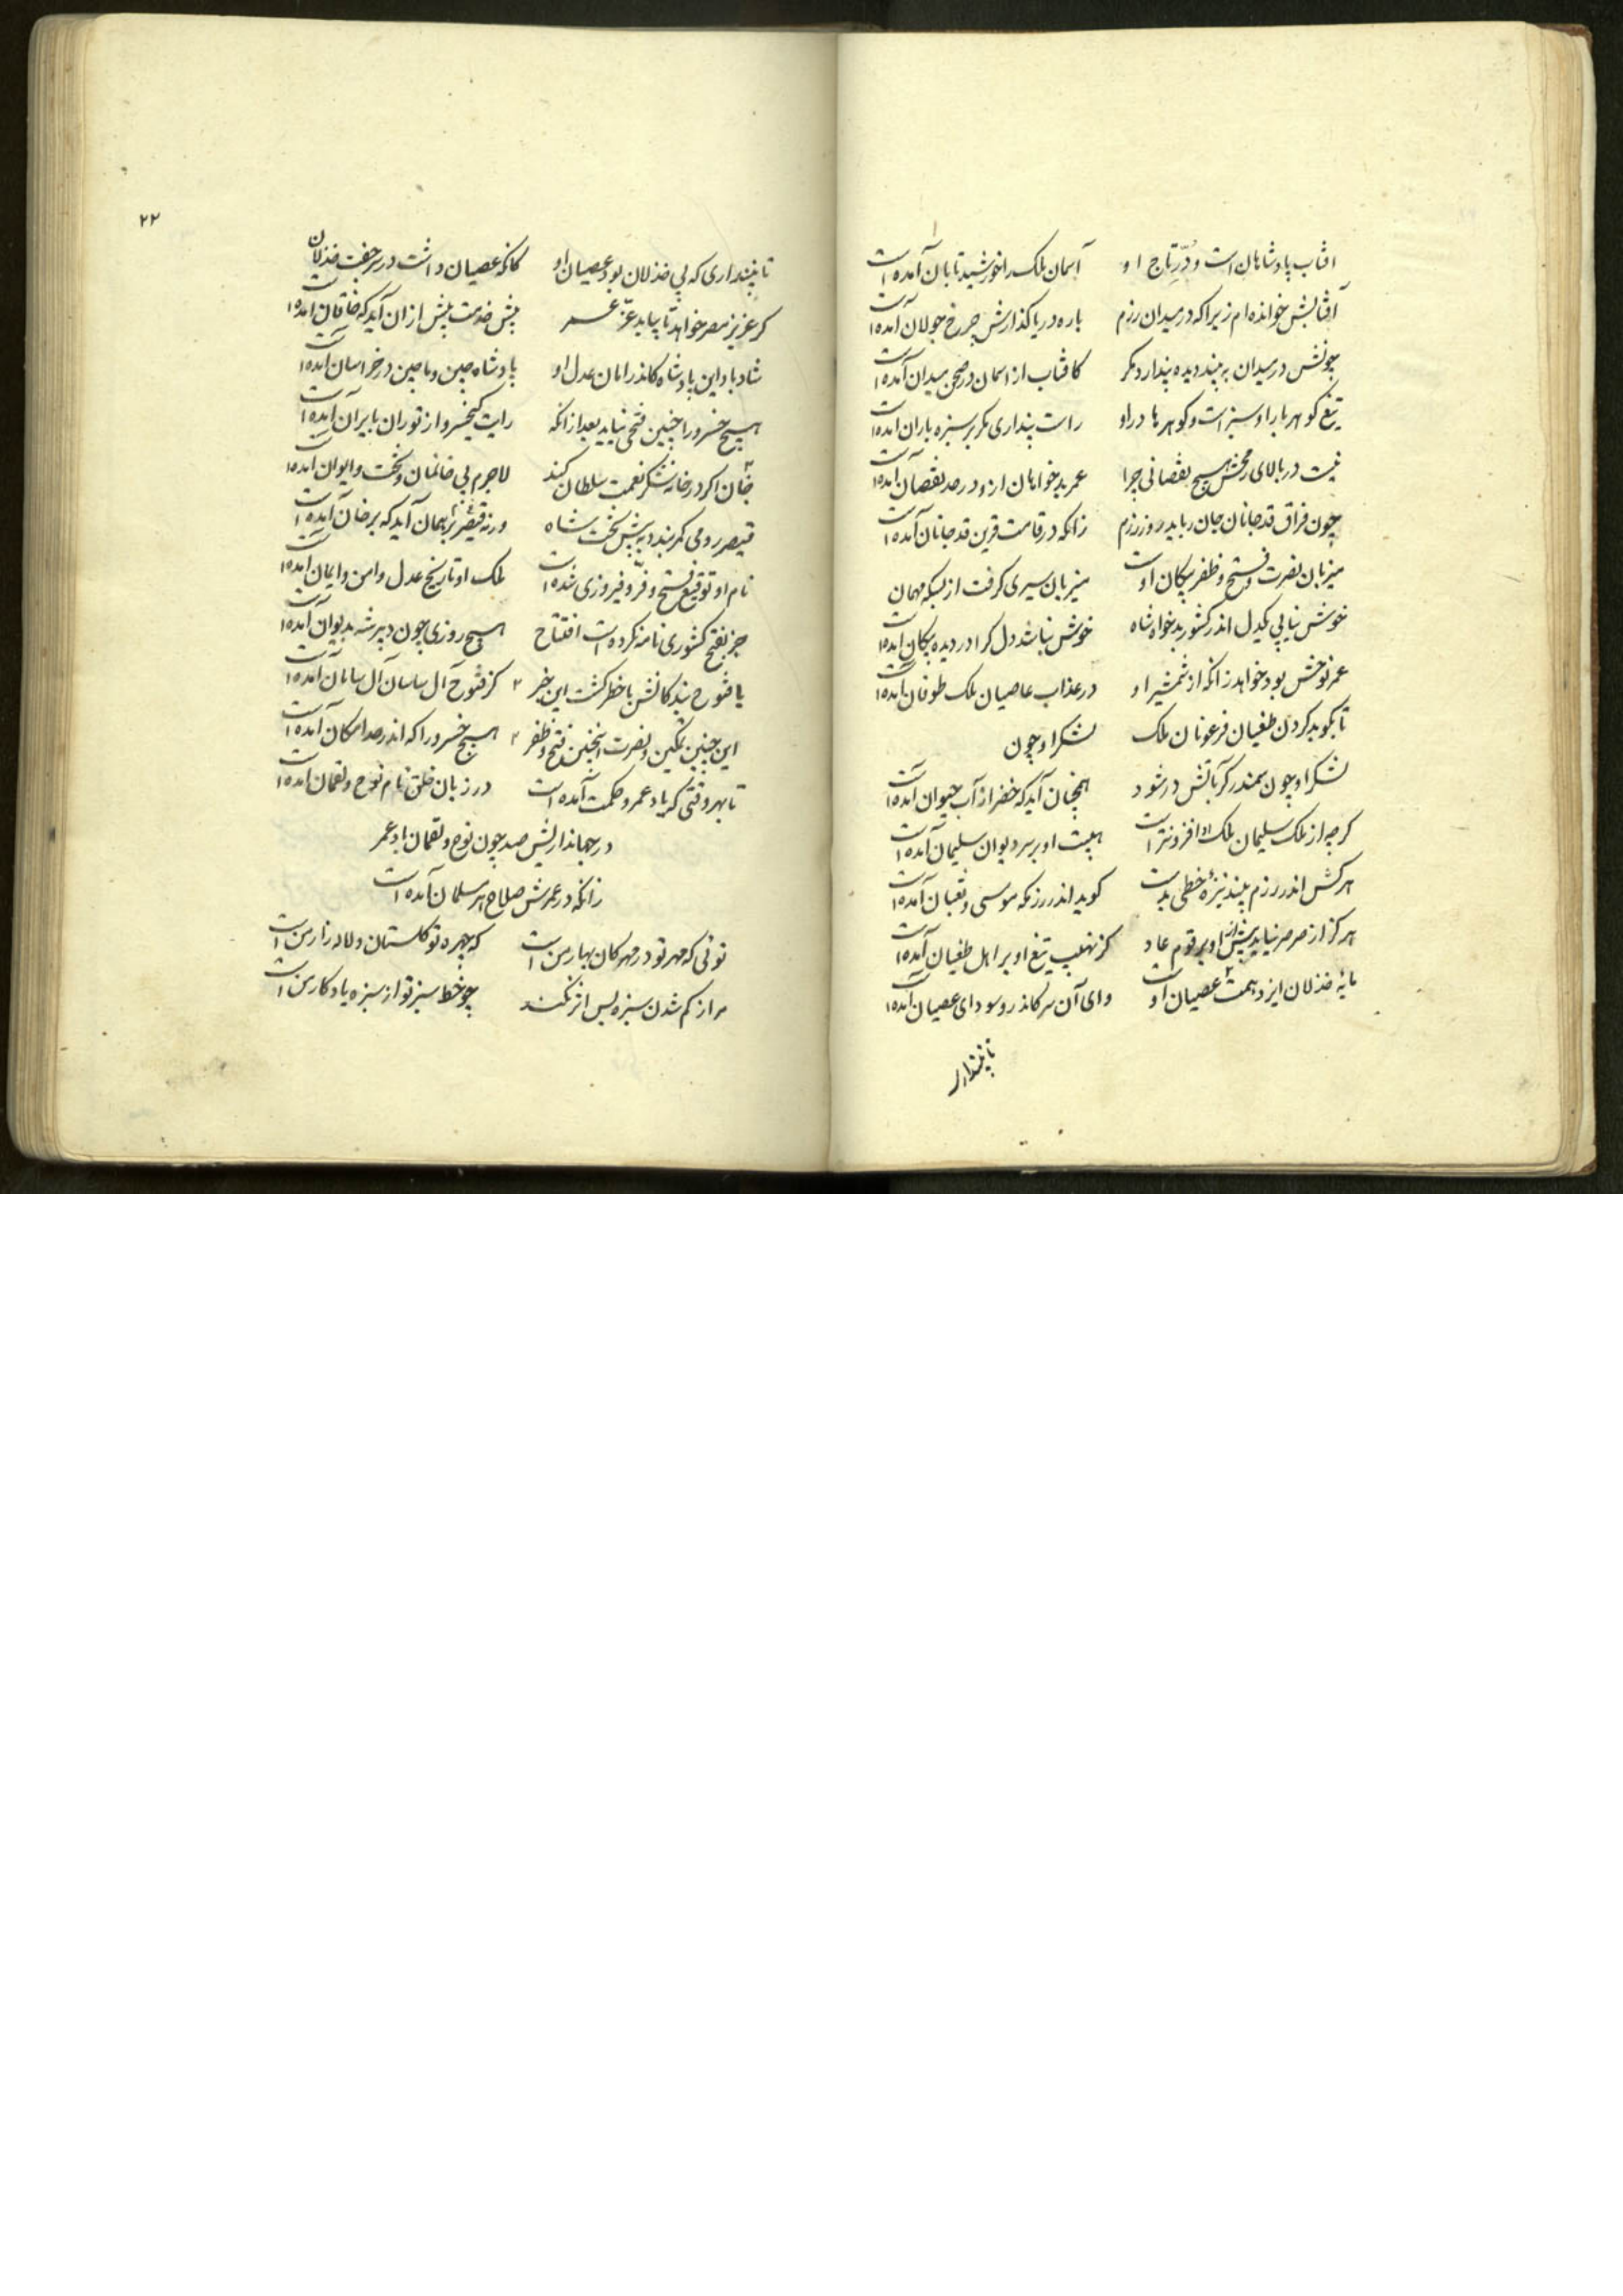 افتاب پادشاهان است و دُرّ تاج او آسمان ملک را خورشید تابان آمده است
آفتابش خوانده ام زیرا که در میدان رزم باره دریا گذارش چرخ جولان آمده است
چونش در میدان به بیند دیده پندارد مگر کافتاب از اسمان در صحن میدان آمده است
تیغ گوهر بار او سبز است و گوهرها درو راست پنداری مگر بر سبزه باران آمده است
نیست در بالای رمحش هیچ نقصانی چرا عمر بدخواهان ازو در حد نقصان آمده است
چون فراق قد جانان جان رباید روز رزم زانکه در قامت قرین قد جانان آمده است
میزبان نصرت و فتح و ظفر پیکان اوست میزبان سیری گرفت از بسکه مهمان
خوش نیابی یکدل اندر کشور بدخواه شاه خوش نباشد دل کرا در دیده پیکان آمده است
عمر نوخش بود خواهد زانکه از شمشیر او در عذاب عاصیان ملک طوفان آمده است
تا بکوبد کردن طغیان فرعونان ملک لشکر او چون
لشکر او چون سمندر گر بآتش در شود همچنان آید که خضر از آب حیوان آمده است
گرچه از ملک سلیمان ملک او افزونتر است هیبت او بر سر دیوان سلیمان آمده است
هر کش اندر رزم بیند نیزهٔ خطی بدست گوید اندر رزمگه موسی و ثعبان آمده است
هرگز از صرصر نیاید بیش ازان بر قوم عاد کز نهیب تیغ او بر اهل طغیان آمده است
مایهٔ خذلان ایزد هست عصیان او وای آن سر کاندرو سودای عصیان آمده است
تا نپندار
۲۲
تا نپنداری که بی خذلان بود عصیان او کانکه عصیان داشت در سر جفت خذلان
گر عزیز مصر خواهد تا بیابد عزّ عمر پیش خدمت بیش ازان آید که خاقان آمده است
شاد باد این پادشاه کاندر امان عدل او پادشاه چین و ماچین در خراسان آمده است
هیچ خسرو را چنین فتحی نیاید بعد از انکه رایت کیخسرو از توران بایران آمده است
خان اگر در خانه شکر نعمت سلطان کند لاجرم بی خانمان و تخت و ایوان آمده است
قیصر رومی کمر بندد به پیش تخت شاه ورنه قیصر را همان آید که بر خان آمده است
نام او توقیع فتح و فرّ و فیروزی شده است ملک او تاریخ عدل و امن و ایمان آمده است
جز بفتح کشوری نامه نکرده است افتتاح هیچ روزی چون دبیر شه بدیوان آمده است
با فتوح بندکانش باخطر گشت این خبر کز فتوح آل ساسان آل سامان آمده است
این چنین تمکین و نصرت اینچنین فتح و ظفر هیچ خسرو را که اندر حد امکان آمده است
تا بهر وقتی که یاد عمر و حکمت آمده است در زبان خلق نام نوح و لقمان آمده است
در جهانداریش صد چون نوح و لقمان باد عمر
زانکه در عمرش صلاح هر مسلمان آمده است
توئی که مهر تو در مهرگان بهار من است که چهره تو گلستان و لاله زار من است
مرا ز کم شدن سبزه بس اثر نکند چو خط سبز تو از سبزه یادگار من است